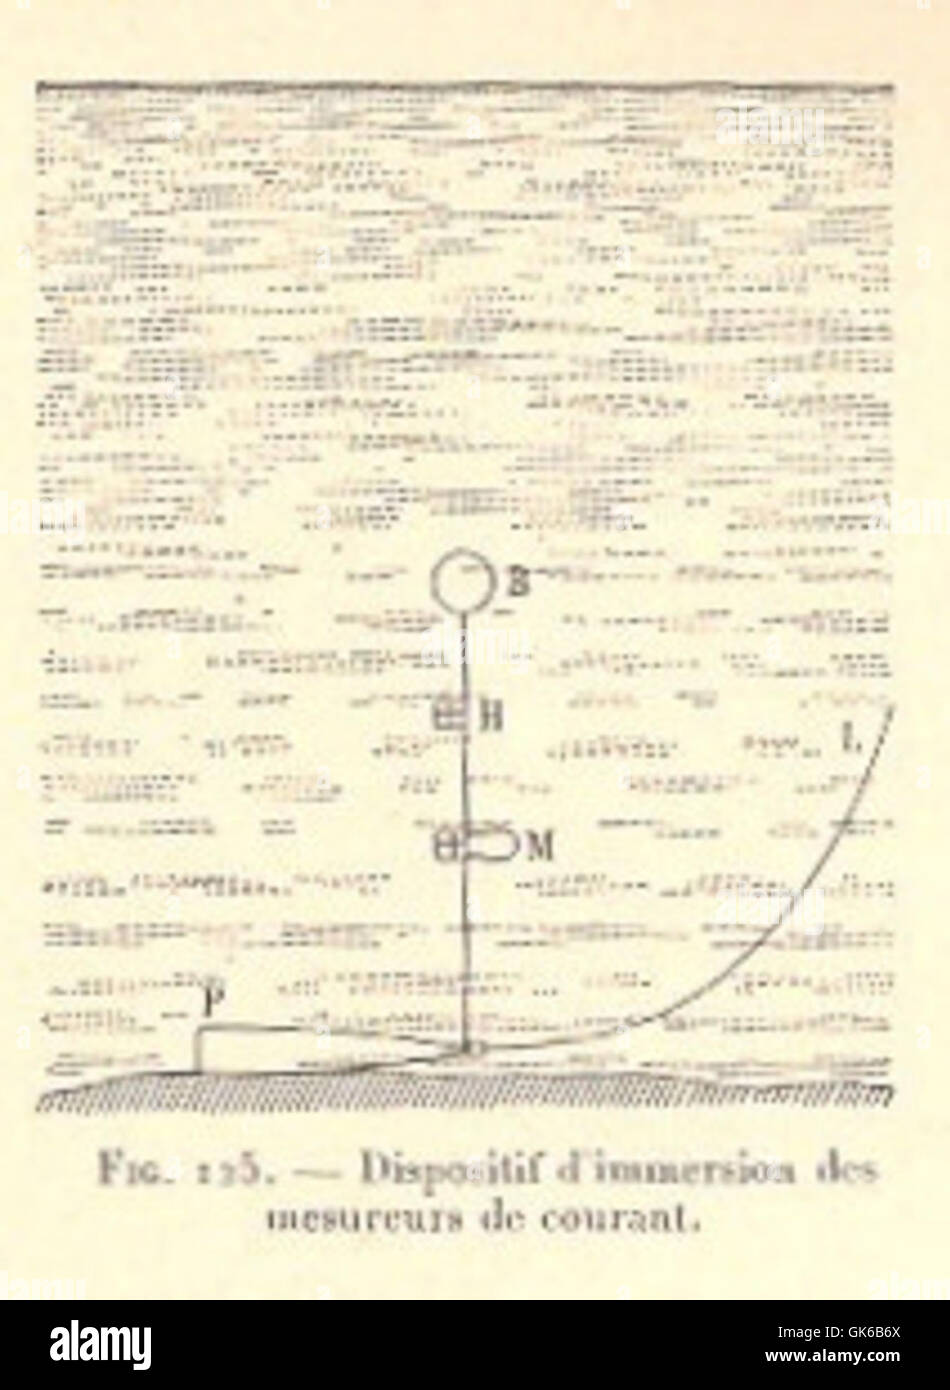 B
H
L
M
P
Fig. 125. — Dispositif d'immersion des
mesureurs de courant.
alamy
Image ID: GK6B6X
www.alamy.com